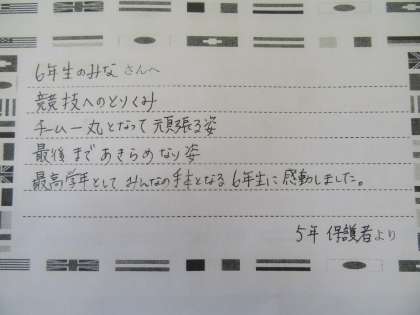 6年生のみなさんへ
競技へのとりくみ
チーム一丸となって頑張る姿
最後まであきらめない姿
最高学年として みんなの手本となる6年生に感動しました。
5年 保護者より